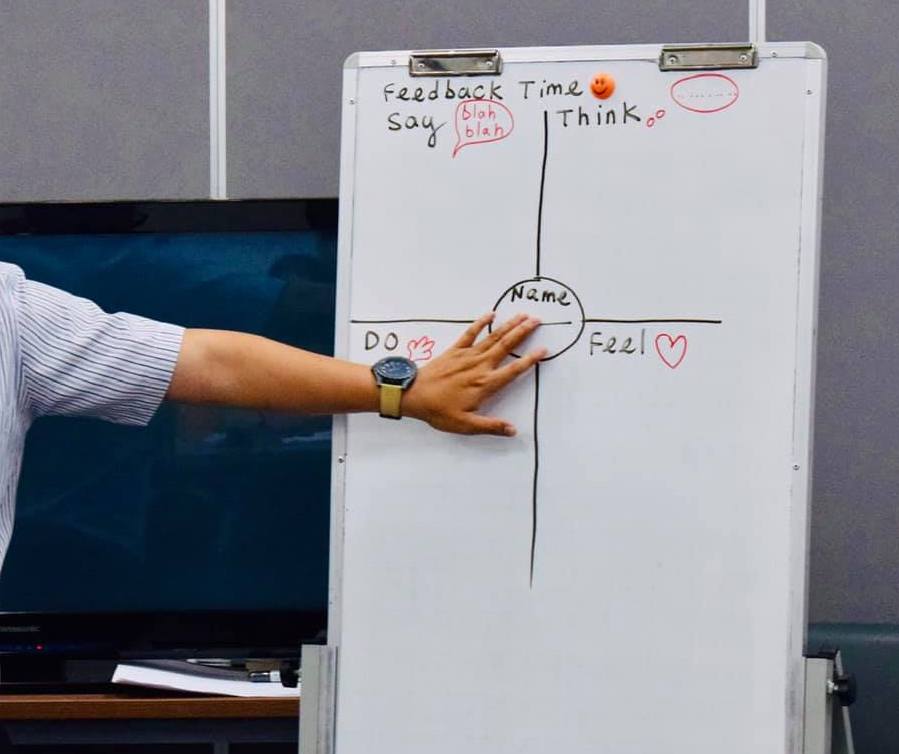 Feedback Time
Say blah blah
Think
Name
DO
Feel
Panasonic